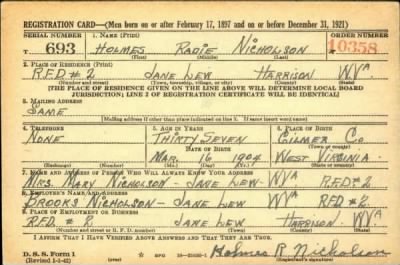 REGISTRATION CARD—(Men born on or after February 17, 1897 and on or before December 31, 1921)
SERIAL NUMBER 1. NAME (Print) ORDER NUMBER
T 693 HOLMES RADIE NICHOLSON 10358
2. PLACE OF RESIDENCE (Print)
R.F.D. # 2 JANE LEW HARRISON W.VA.
(Number and street) (Town, township, village, or city) (County) (State)
[THE PLACE OF RESIDENCE GIVEN ON THE LINE ABOVE WILL DETERMINE LOCAL BOARD
JURISDICTION; LINE 2 OF REGISTRATION CERTIFICATE WILL BE IDENTICAL]
3. MAILING ADDRESS
SAME
[Mailing address if other than place indicated on line 2. If same insert word same]
4. TELEPHONE 5. AGE IN YEARS 6. PLACE OF BIRTH
NONE THIRTY SEVEN GILMER CO.
DATE OF BIRTH (Town or county)
MAR. 16 1904 WEST VIRGINIA
(Exchange) (Number) (Mo.) (Day) (Yr.) (State or country)
7. NAME AND ADDRESS OF PERSON WHO WILL ALWAYS KNOW YOUR ADDRESS
MRS. MARY NICHOLSON - JANE LEW - W.VA R.F.D. #2
8. EMPLOYER'S NAME AND ADDRESS
BROOKS NICHOLSON - JANE LEW W.VA R.F.D. #2
9. PLACE OF EMPLOYMENT OR BUSINESS
R.F.D # 2 JANE LEW HARRISON. W.VA
(Number and street or R. F. D. number) (Town) (County) (State)
I AFFIRM THAT I HAVE VERIFIED ABOVE ANSWERS AND THAT THEY ARE TRUE.
D. S. S. Form 1
(Revised 1-1-42) GPO Holmes R Nicholson